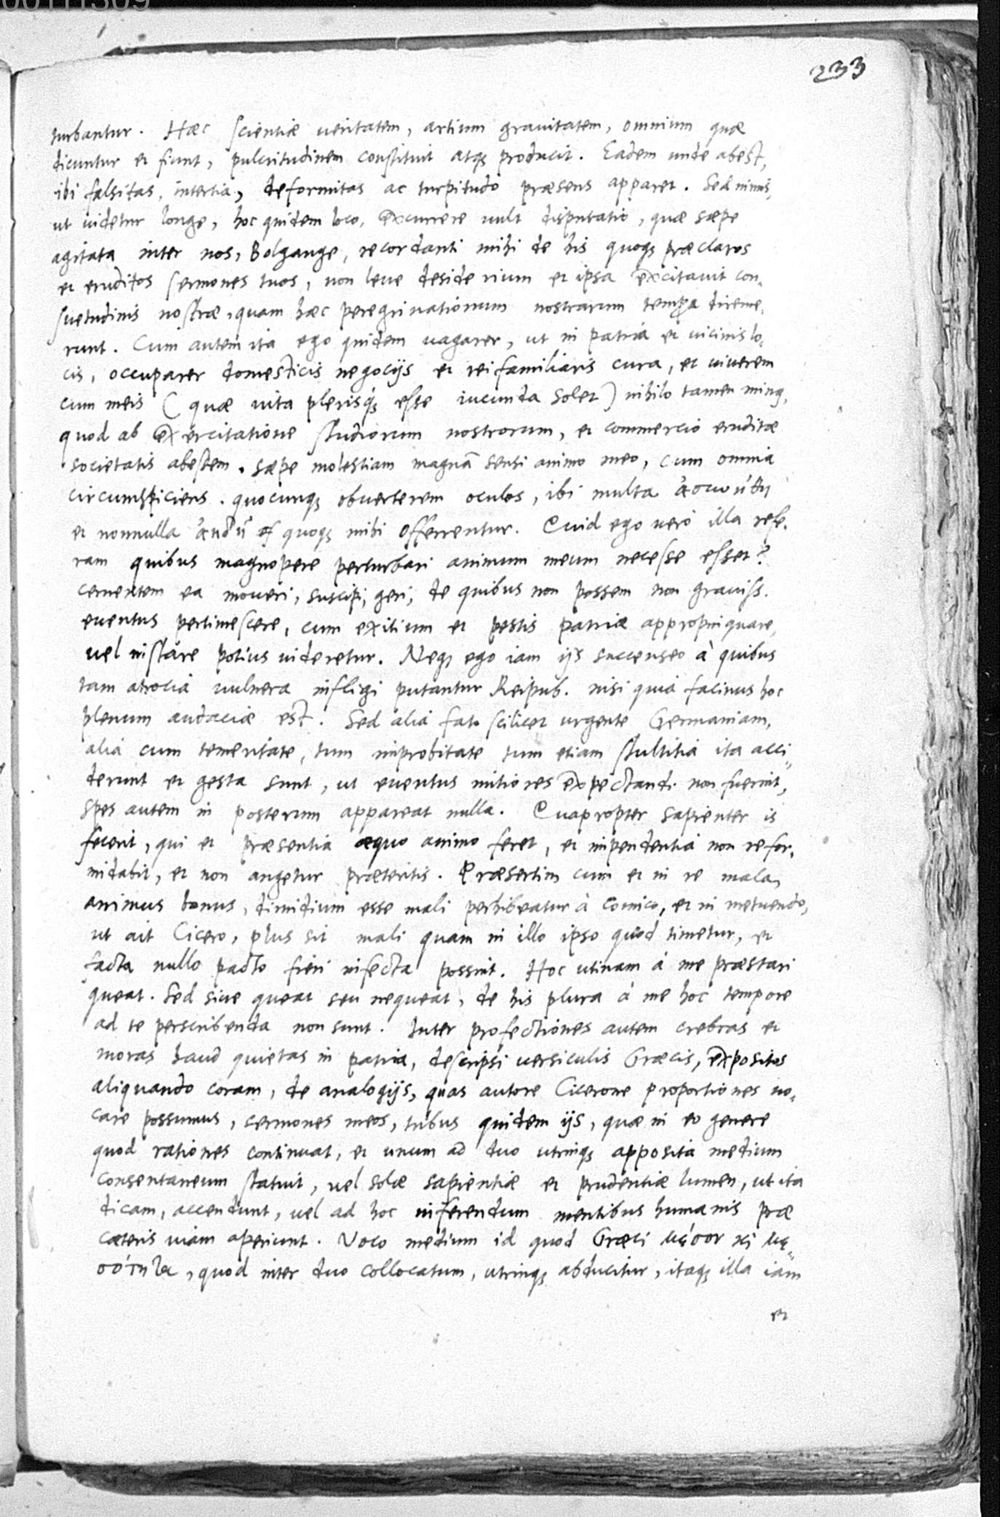 00111309
233
turbantur. Hæc scientiæ veritatem, artium gravitatem, omnium quæ
dicuntur et fiunt, pulcritudinem constituit atqꝫ producit. Eadem unde abest,
ibi falsitas, inertia, deformitas ac turpitudo præsens apparet. Sed nimis,
ut videtur longe, hoc quidem loco, excurrere vult disputatio, quæ sæpe
agitata inter nos, Bolgange, recordanti mihi de his quoqꝫ præclaros
et eruditos sermones tuos, non leve desiderium et ipsa excitavit con-
suetudinis nostræ, quam hæc peregrinationum nostrarum tempora direme-
runt. Cum autem ita ego quidem vagarer, ut in patria et vicinis lo-
cis, occuparer domesticis negocijs et rei familiaris cura, et viverem
cum meis (quæ vita plerisqꝫ esse iucunda solet) nihilo tamen minꝰ,
quod ab exercitatione studiorum nostrorum, et commercio eruditæ
societatis abessem. sæpe molestiam magnā sensi animo meo, cum omnia
circumspiciens. quocunqꝫ obverterem oculos, ibi multa
et nonnulla quoqꝫ mihi offerrentur. Quid ego vero illa refe-
ram quibus magnopere perturbari animum meum necesse esset?
cernentem ea moveri, suscipi, geri, de quibus non possem non graviss.
eventus pertimescere, cum exitium et pestis patriæ appropinquare,
vel instare potius videretur. Neqꝫ ego iam ijs succenseo à quibus
tam atrocia vulnera infligi putantur Reipub. nisi quia facinus hoc
plenum audaciæ est. Sed alia fato scilicet urgente Germaniam,
alia cum temeritate, tum improbitate tum etiam stultitia ita acci-
derunt et gesta sunt, ut eventus mitiores expectandi non fuerint,
spes autem in posterum appareat nulla. Quapropter sapienter is
fecerit, qui et præsentia æquo animo feret, et impendentia non refor-
midabit, et non angetur præteritis. Præsertim cum et in re mala,
animus bonus, dimidium esse mali perhibeatur à comico, et in metuendo,
ut ait Cicero, plus sit mali quam in illo ipso quod timetur, et
facta nullo pacto fieri infecta possint. Hoc utinam à me præstari
queat. Sed sive queat seu nequeat, de his plura à me hoc tempore
ad te perscribenda non sunt. Inter profectiones autem crebras et
moras haud quietas in patria, descripsi versiculis Græcis, expositos
aliquando coram, de analogijs, quas autore Cicerone proportiones vo-
care possumus, sermones meos, tribus quidem ijs, quæ in eo genere
quod rationes continuat, et unum ad duo utrinqꝫ apposita medium
consentaneum statuit, vel solæ sapientiæ et prudentiæ lumen, ut ita
dicam, accendunt, vel ad hoc inferendum mentibus humanis præ
cæteris viam aperiunt. Voco medium id quod Græci μέσον κὶ με-
σότητα, quod inter duo collocatum, utrinqꝫ abducitur, itaqꝫ illa iam
et